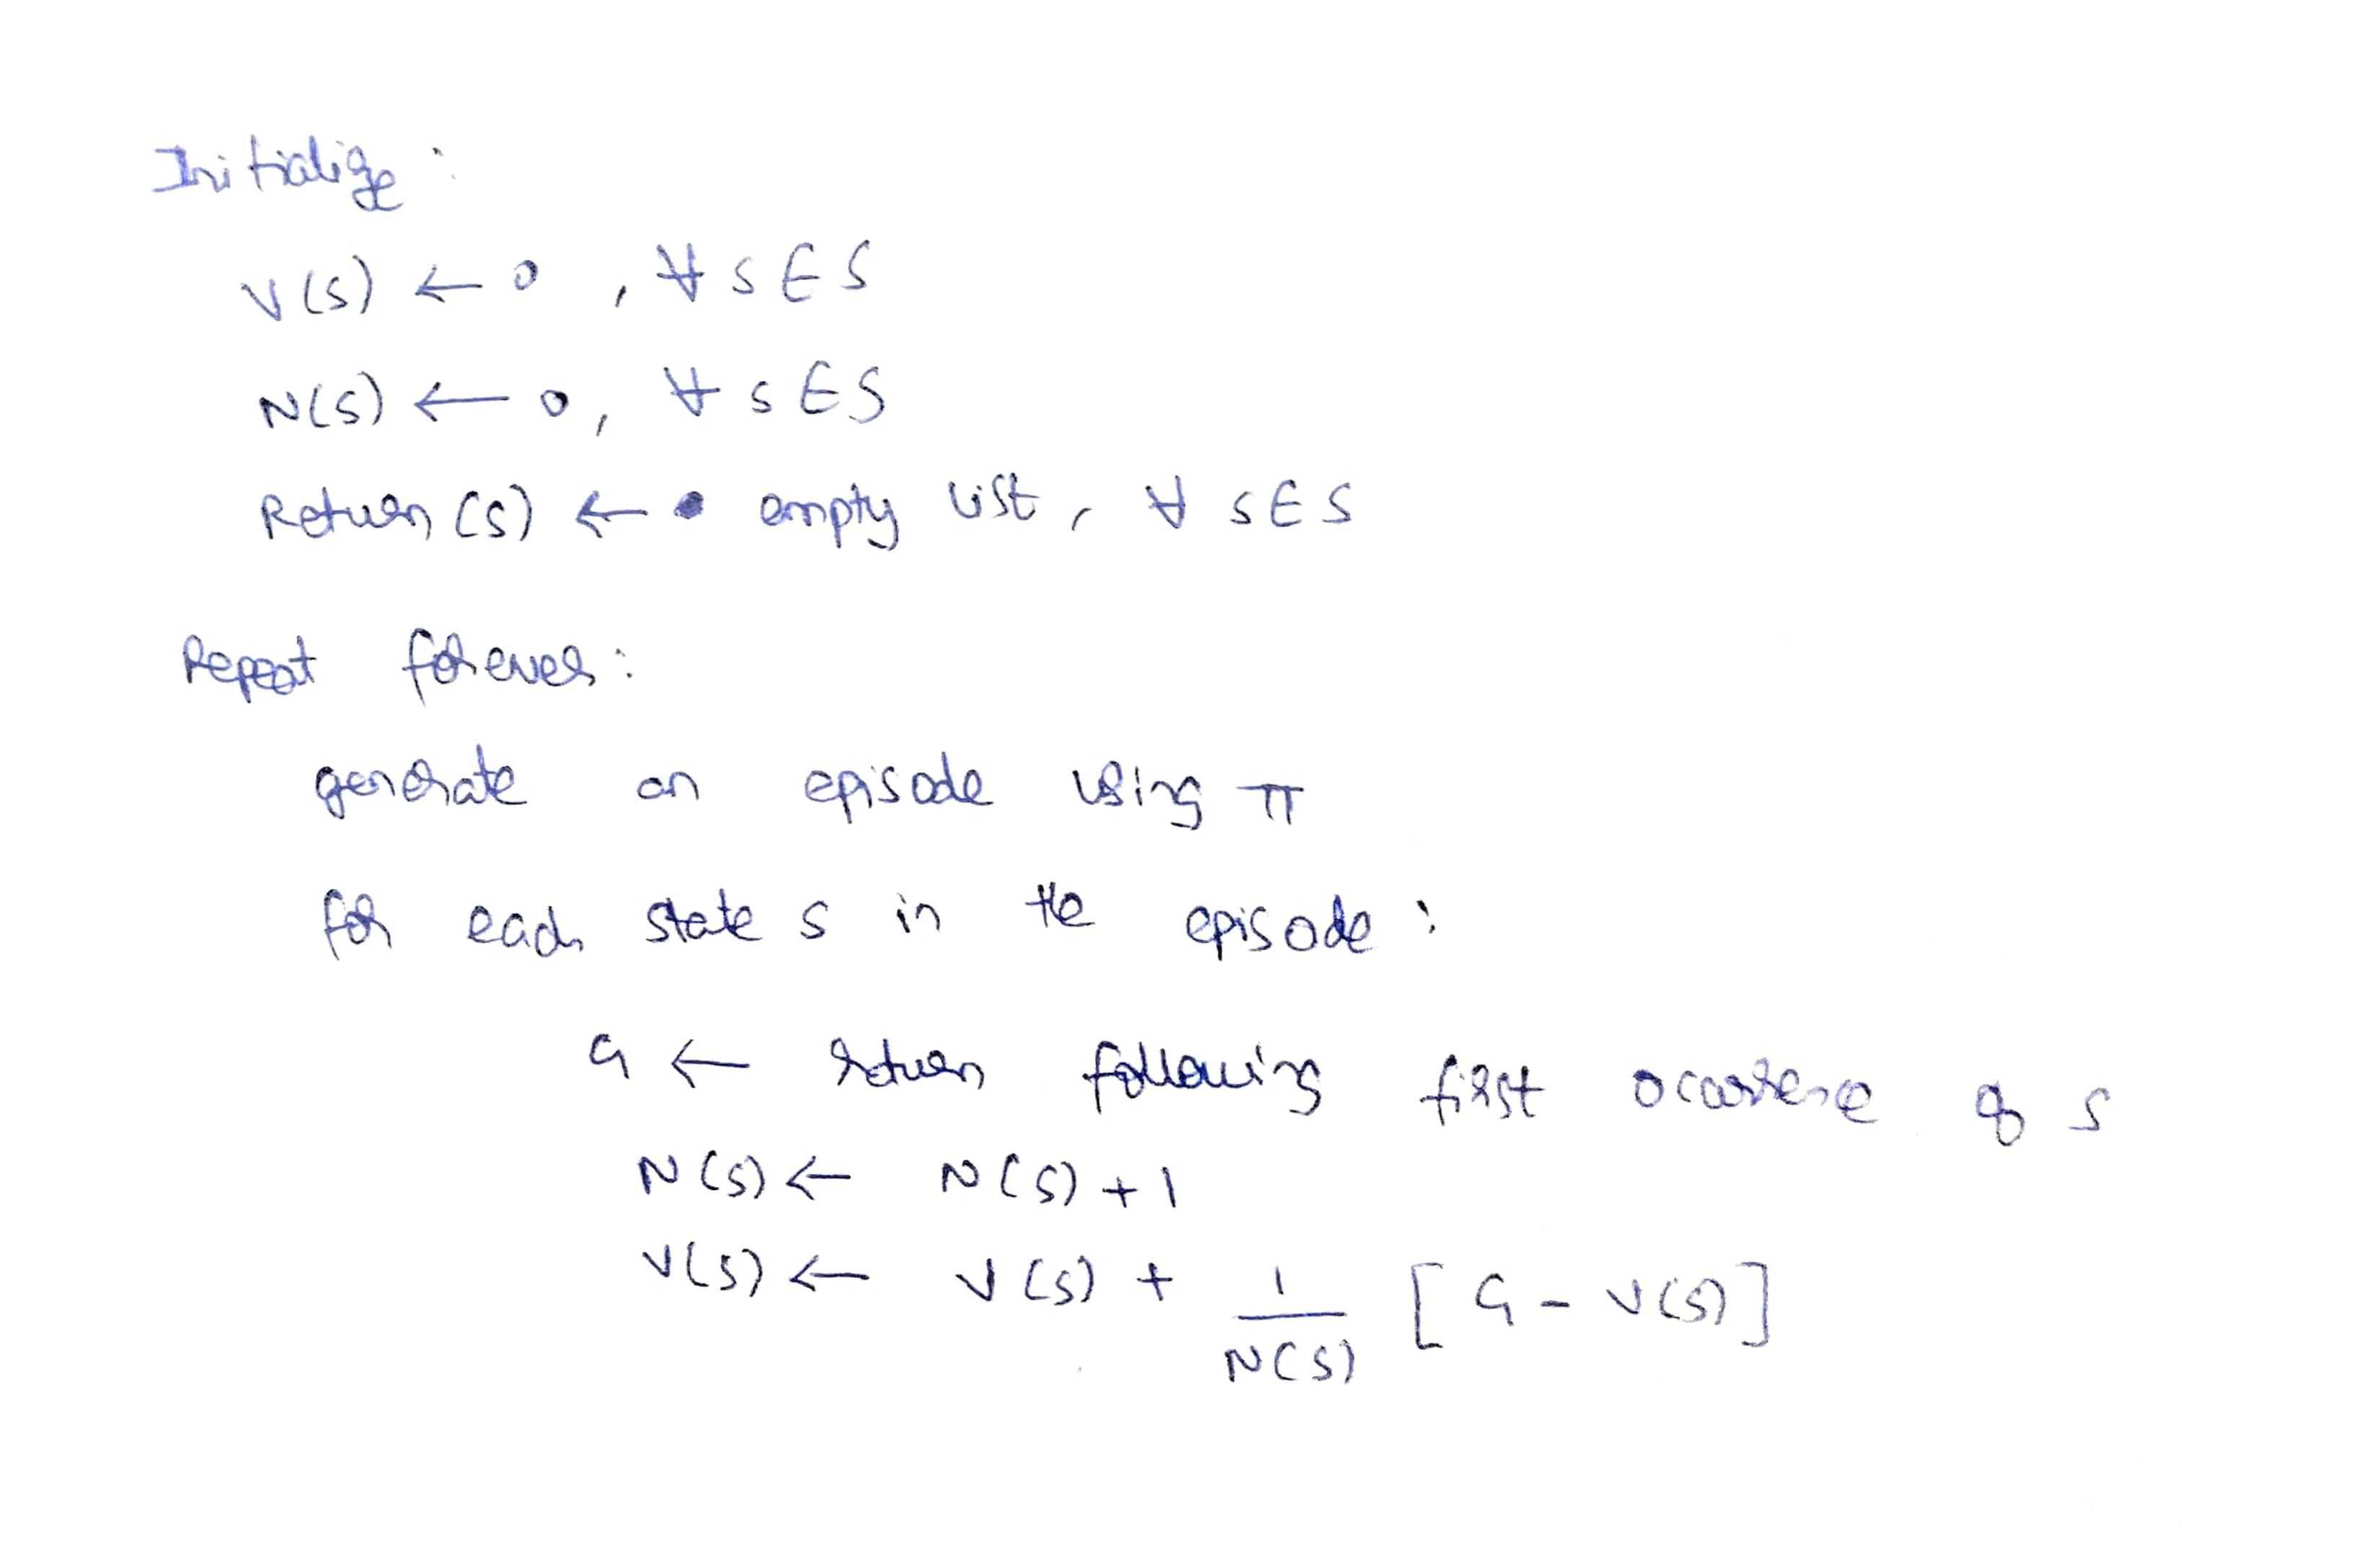 Initialize:
V(s) ← 0 , ∀ s ∈ S
N(s) ← 0, ∀ s ∈ S
Return (s) ← empty list, ∀ s ∈ S
Repeat forever:
generate an episode using π
for each state s in the episode:
G ← return following first occurrence of s
N(s) ← N(s) + 1
V(s) ← V(s) + 1/N(s) [G - V(s)]